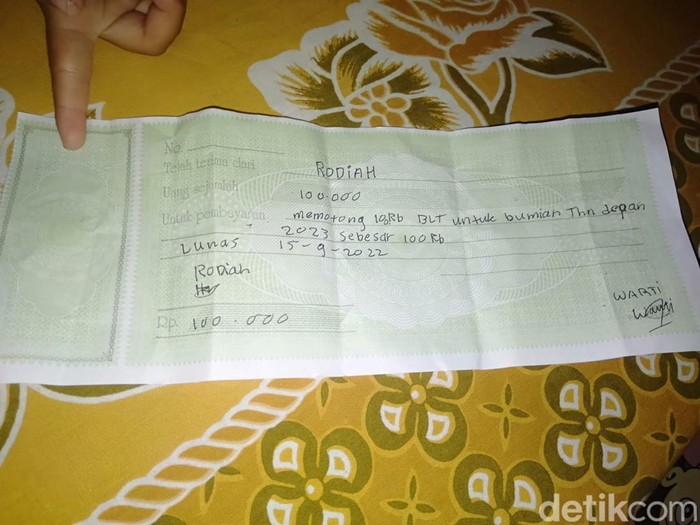 No.
Telah terima dari RODIAH
Uang sejumlah 100.000
Untuk pembayaran memotong 100Rb BLT untuk bumian Thn depan
2023 sebesar 100Rb
Lunas 15-9-2022
RODiah
WARTI
Warti
Rp. 100.000
detikcom